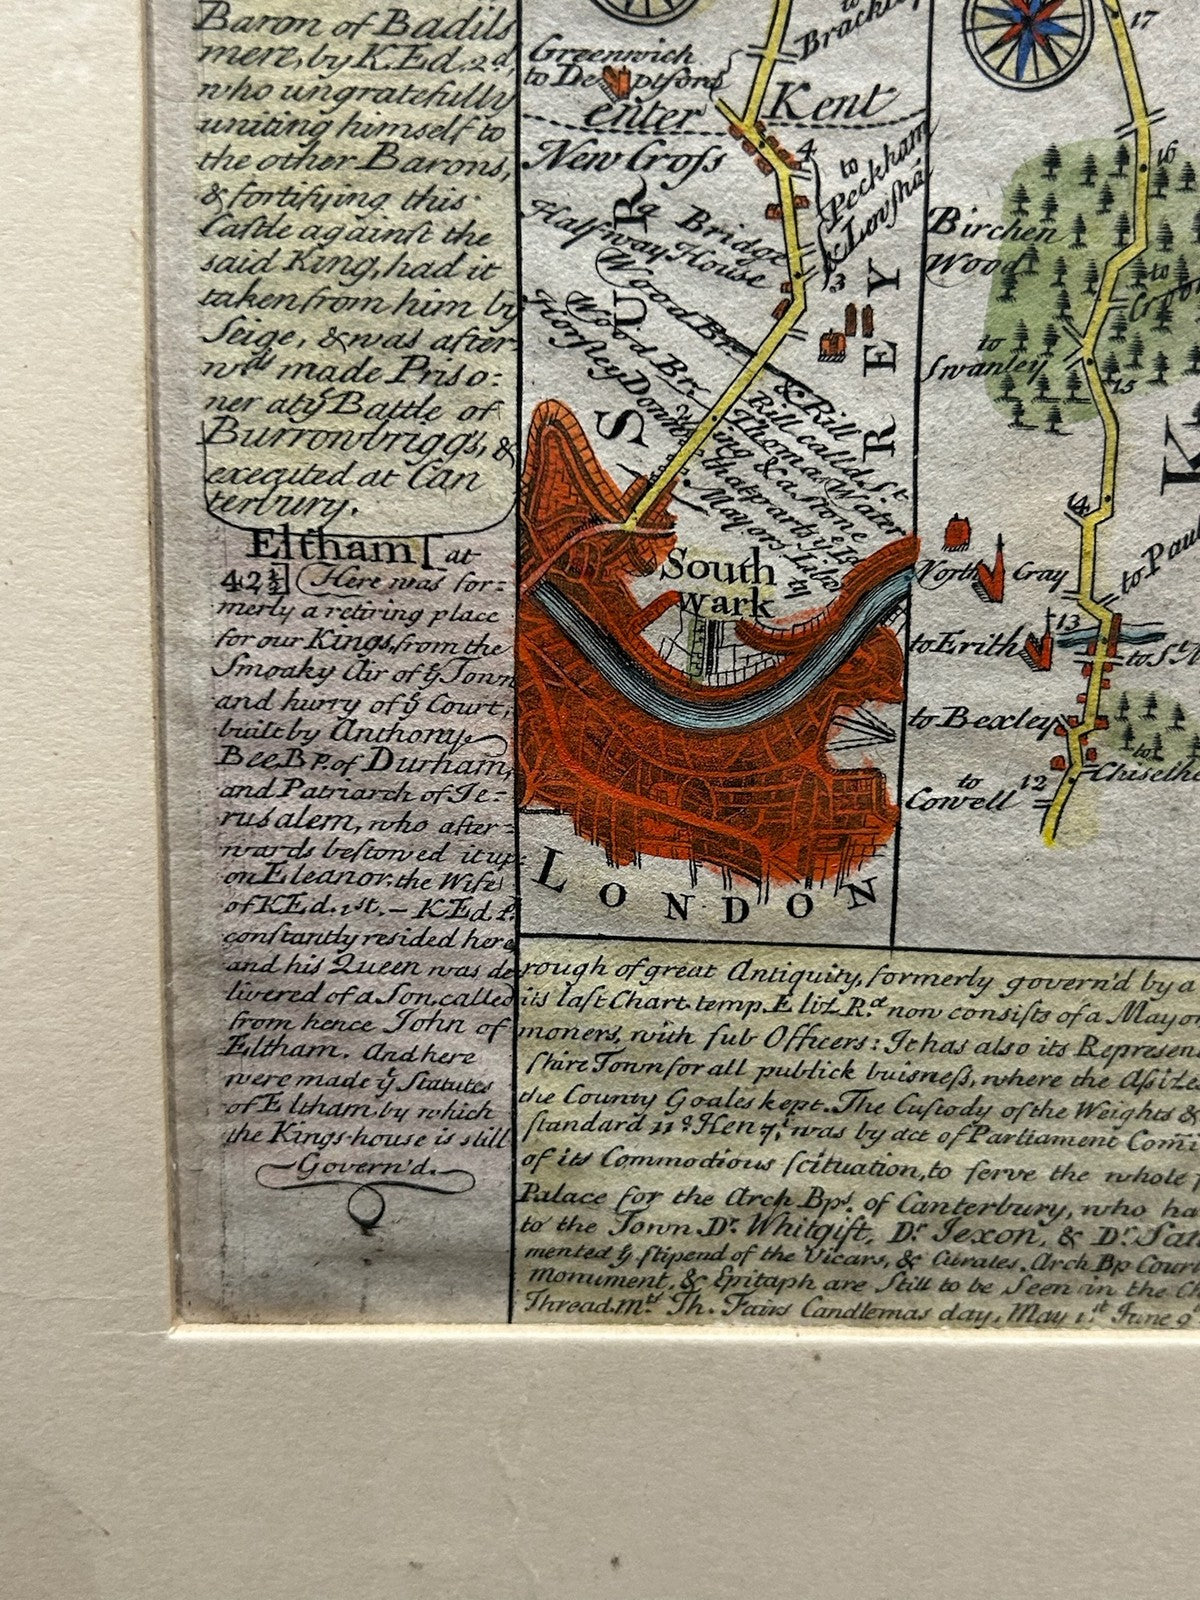 Baron of Badils
mere, by K. Ed. 2d,
who ungratefully
uniting himself to
the other Barons,
& fortifying this
Castle against the
said King, had it
taken from him by
Seige, & was after
wds made Priso:
ner at yͤ Battle of
Burrowbriggs, &
executed at Can
terbury.
Eltham [at
42½] Here was for=
merly a retiring place
for our Kings, from the
Smoaky Air of yͤ Town
and hurry of yͤ Court,
built by Anthony
Bec Bp. of Durham,
and Patriarch of Je=
rusalem, who after=
wards bestowed it up:
on Eleanor, the Wife
of K Ed. 1st. — K Ed. 2.
constantly resided here
and his Queen was de
livered of a Son, called
from hence John of
Eltham. And here
were made yͤ Statutes
of Eltham, by which
the Kings house is still
Govern'd.
to
Brackley
Greenwich
to Deptford
enter Kent
New Cross
4
to
Peckham
& Lewsha
a Bridge
Halfway House
3
Wood Br. & Rill
Wood Br.
Rill calld St.
Thomas Water
Horsley Down
ing & a stone
that parts yͤ Lo
Mayors Liber
ty
SURREY
South
wark
LONDON
17
16
Birchen
Wood
to
to
Swanley
15
K
14
to Paul
North Cray
13
to Erith
to St. M
to Bexley
to
Chiselhe
12
to
Cowell
rough of great Antiquity, formerly govern'd by a
its last Chart. temp. Eliz. Ræ. now consists of a Mayor
moners, with sub Officers: It has also its Represen
Shire Town for all publick buisness, where the Assizes
the County Goales kept. The Custody of the Weights &
standard 11o Hen 7i. was by act of Parliament Com̄i
of its Commodious scituation, to serve the whole
Palace for the Arch Bps. of Canterbury, who ha
to the Town. Dr. Whitgift, Dr. Jexon, & Dr. San
mented yͤ stipend of the Vicars, & Curates. Arch Bp Court
monument, & Epitaph are Still to be Seen in the Ch
Thread. mts. Th. Fairs Candlemas day, May 1st June 9